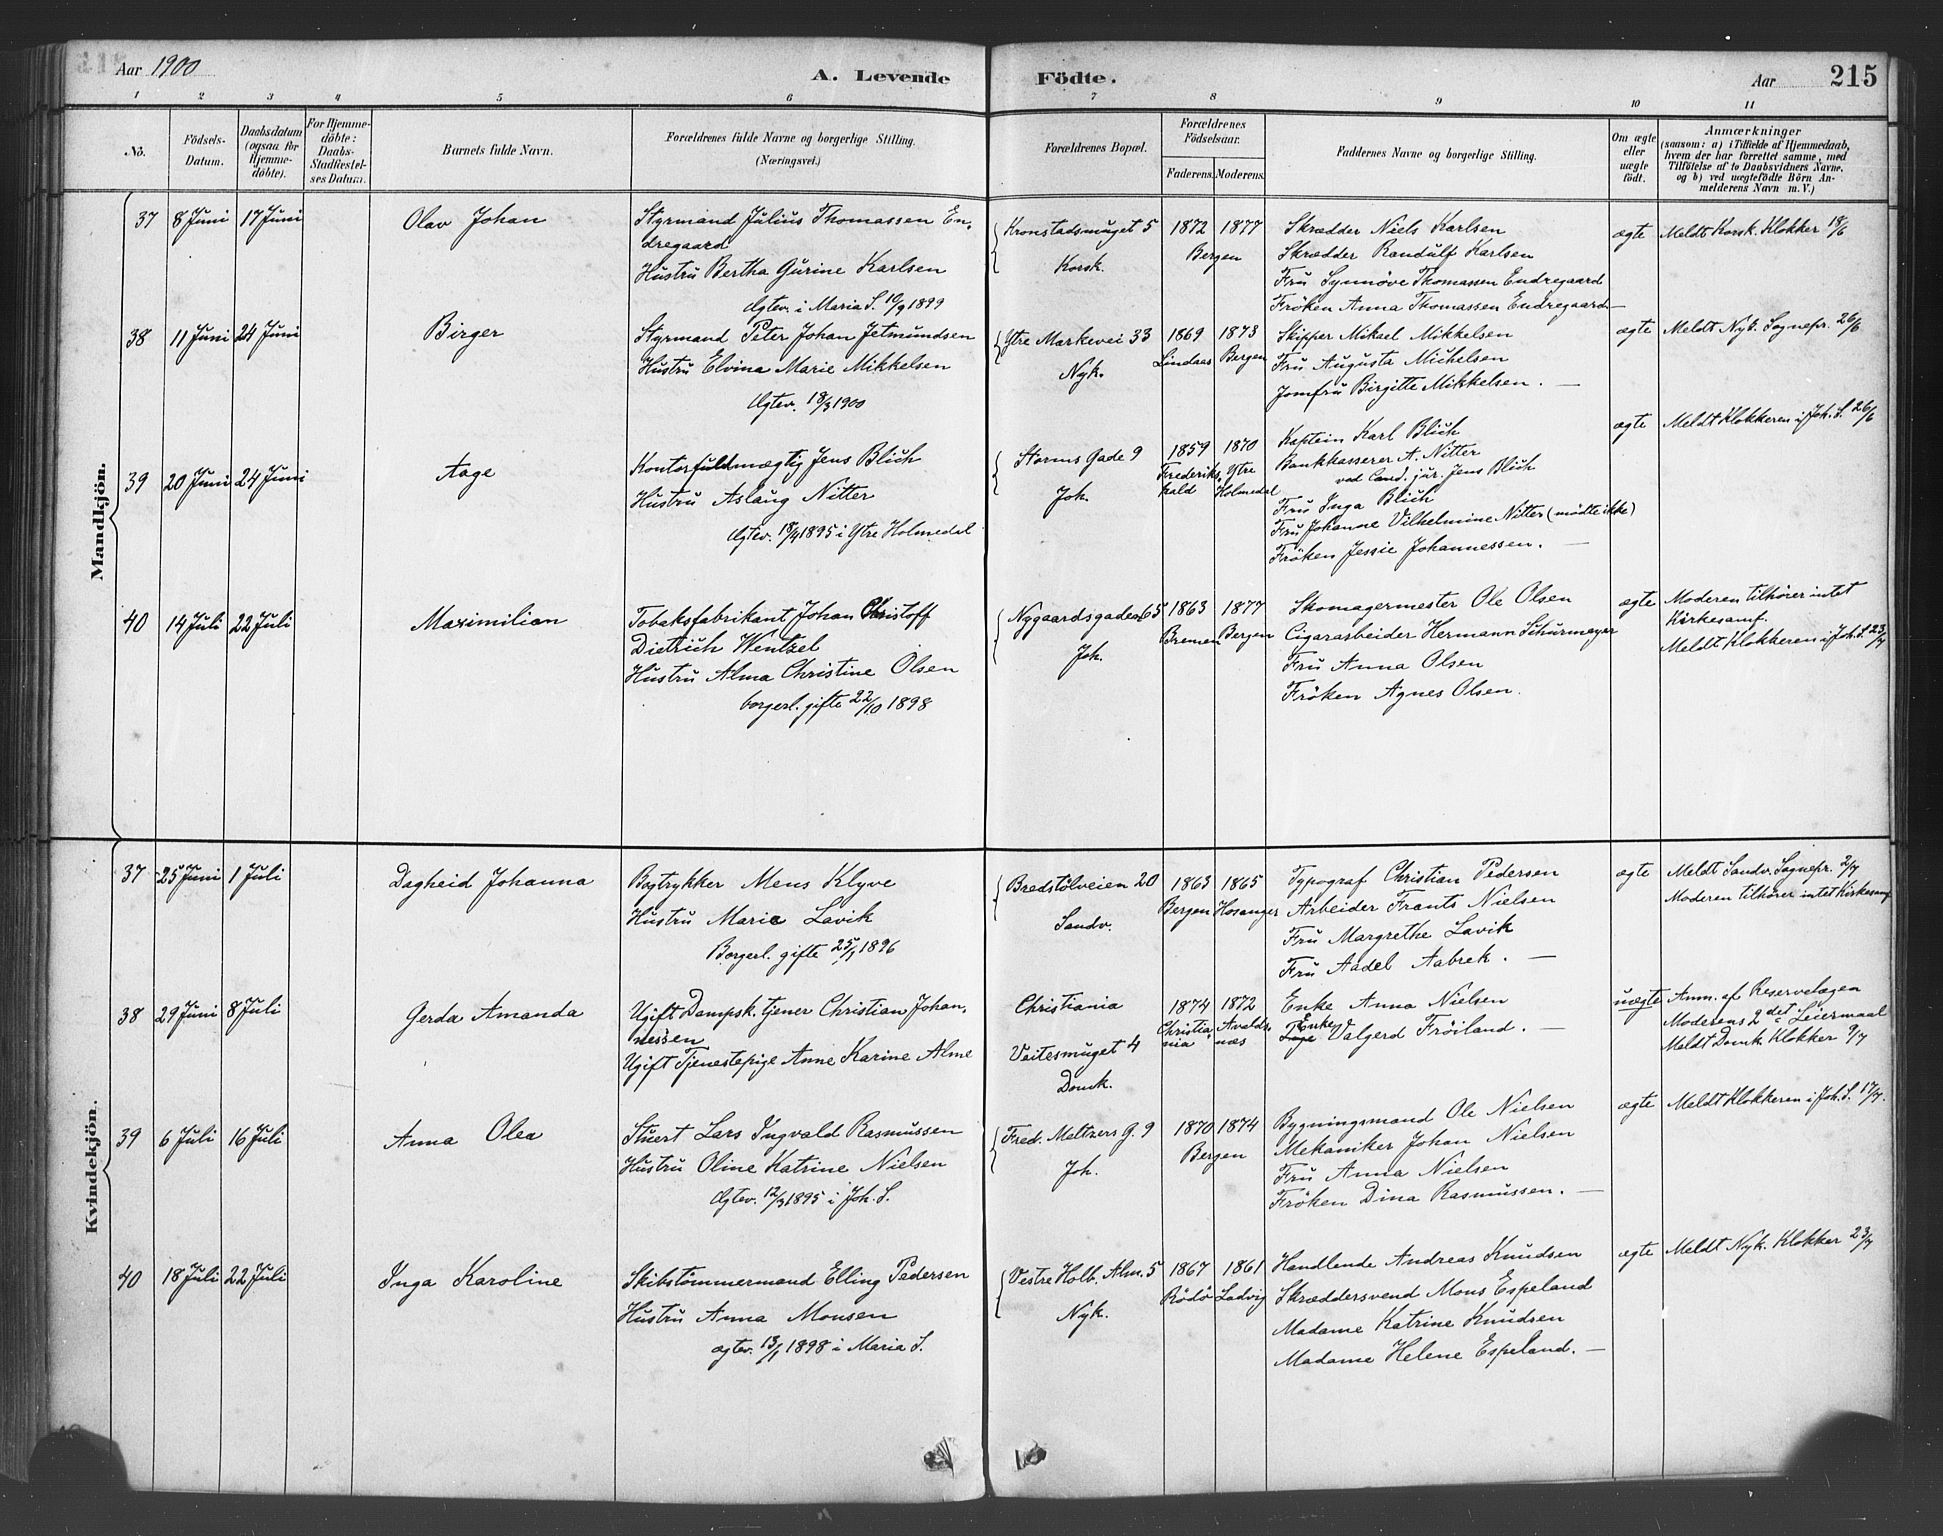 Aar 1900
A. Levende Födte.
Aar 215
1 2 3 4 5 6 7 8 9 10 11
No.
Födsels-
Datum.
Daabsdatum
(ogsaa for
Hjemme-
döbte).
For Hjemme-
döbte:
Daabs-
Stadfæstel-
ses Datum.
Barnets fulde Navn.
Forældrenes fulde Navne og borgerlige Stilling.
(Næringsvei.)
Forældrenes Bopæl.
Forældrenes
Födselsaar.
Faderens. Moderens.
Faddernes Navne og borgerlige Stilling.
Om ægte
eller
uægte
födt.
Anmærkninger
(saasom: a) i Tilfælde af Hjemmedaab,
hvem der har forrettet samme, med
Tilföielse af to Daabsvidners Navne,
og b) ved uægtefödte Börn An-
melderens Navn m. V.)
Mandkjön.
37 8 Juni 17 Juni
Olav Johan
Styrmand Julius Thomassen En-
dregaard
Hustru Bertha Gurine Karlsen
Ægtev. i Maria S. 10/9 1899
Kronstadsmuget 5
Korsk.
1872 1877
Bergen
Skrædder Niels Karlsen
Skrædder Randulf Karlsen
Fru Synnöve Thomassen Endregaard
Fröken Anna Thomassen Endregaard
ægte
Meldt Korsk. Klokker 18/6
38 11 Juni 24 Juni
Birger
Styrmand Peter Johan Jetmundsen
Hustru Elvina Marie Mikkelsen
Ægtev. 18/3 1900
Ytre Markevei 33
Nyk.
1869 1873
Lindaas Bergen
Skipper Mikael Mikkelsen
Fru Augusta Michelsen
Jomfru Birgitte Mikkelsen.
ægte
Meldt Nyk. Sognepr. 26/6
39 20 Juni 24 Juni
Aage
Kontorfuldmægtig Jens Blich
Hustru Aslaug Nitter
Ægtev. 18/4 1895 i Ytre Holmedal
Storms Gade 9
Joh.
1859 1870
Frederiks-
hald
Ytre
Holmedal
Kaptein Karl Blich
Bankkasserer A. Nitter
ved Cand. jur. Jens Blich
Fru Inga Blich
Fru Johanne Vilhelmine Nitter (mödte ikke)
Fröken Jessie Johannessen.
ægte
Meldt Klokkeren i Joh. S. 26/6
40 14 Juli 22 Juli
Maximilian
Tobaksfabrikant Johan Christoff
Dietrich Wentzel
Hustru Alma Christine Olsen
borgerl. gifte 22/10 1898
Nygaardsgaden 65
Joh.
1863 1877
Bremen Bergen
Skomagermester Ole Olsen
Cigararbeider Hermann Schurmeyer
Fru Anna Olsen
Fröken Agnes Olsen.
ægte
Moderen tilhörer intet
Kirkesamf.
Meldt Klokkeren i Joh. S. 23/7
Kvindekjön.
37 25 Juni 1 Juli
Dagheid Johanna
Bogtrykker Mens Klyve
Hustru Marie Lavik
Borgerl. gifte 25/1 1896
Bredstölveien 20
Sandv.
1863 1865
Bergen Hosanger
Typograf Christian Pedersen
Arbeider Frants Nielsen
Fru Margrethe Lavik
Fru Aadel Aabrek.
ægte
Meldt Sandv. Sognepr. 2/7
Moderen tilhörer intet Kirkesamf
38 29 Juni 8 Juli
Gerda Amanda
Ugift Dampsk. tjener Christian Johan-
nessen
Ugift Tjenestepige Anne Karine Alme
Christiania
Veitesmuget 4
Domk.
1874 1872
Christia-
nia
Avalds-
næs
Enke Anna Nielsen
Enke Valgerd Fröiland.
uægte
Anm. af Reservelægen
Moderens 2det Leiermaal
Meldt Domk. Klokker 9/7
39 6 Juli 16 Juli
Anna Olea
Stuert Lars Ingvald Rasmussen
Hustru Oline Katrine Nielsen
Ægtev. 12/3 1895 i Joh. S.
Fred. Meltzers G. 9
Joh.
1870 1874
Bergen
Bygningsmand Ole Nielsen
Mekaniker Johan Nielsen
Fru Anna Nielsen
Fröken Dina Rasmussen.
ægte
Meldt Klokkeren i Joh. S. 17/7.
40 18 Juli 22 Juli
Inga Karoline
Skibstömmermand Elling Pedersen
Hustru Anna Monsen
ægtev. 13/1 1898 i Maria S.
Vestre Holb. Alm. 5
Nyk.
1867 1861
Rödö Ladvig
Handlende Andreas Knudsen
Skræddersvend Mons Espeland
Madame Katrine Knudsen
Madame Helene Espeland.
ægte
Meldt Nyk. Klokker 23/7